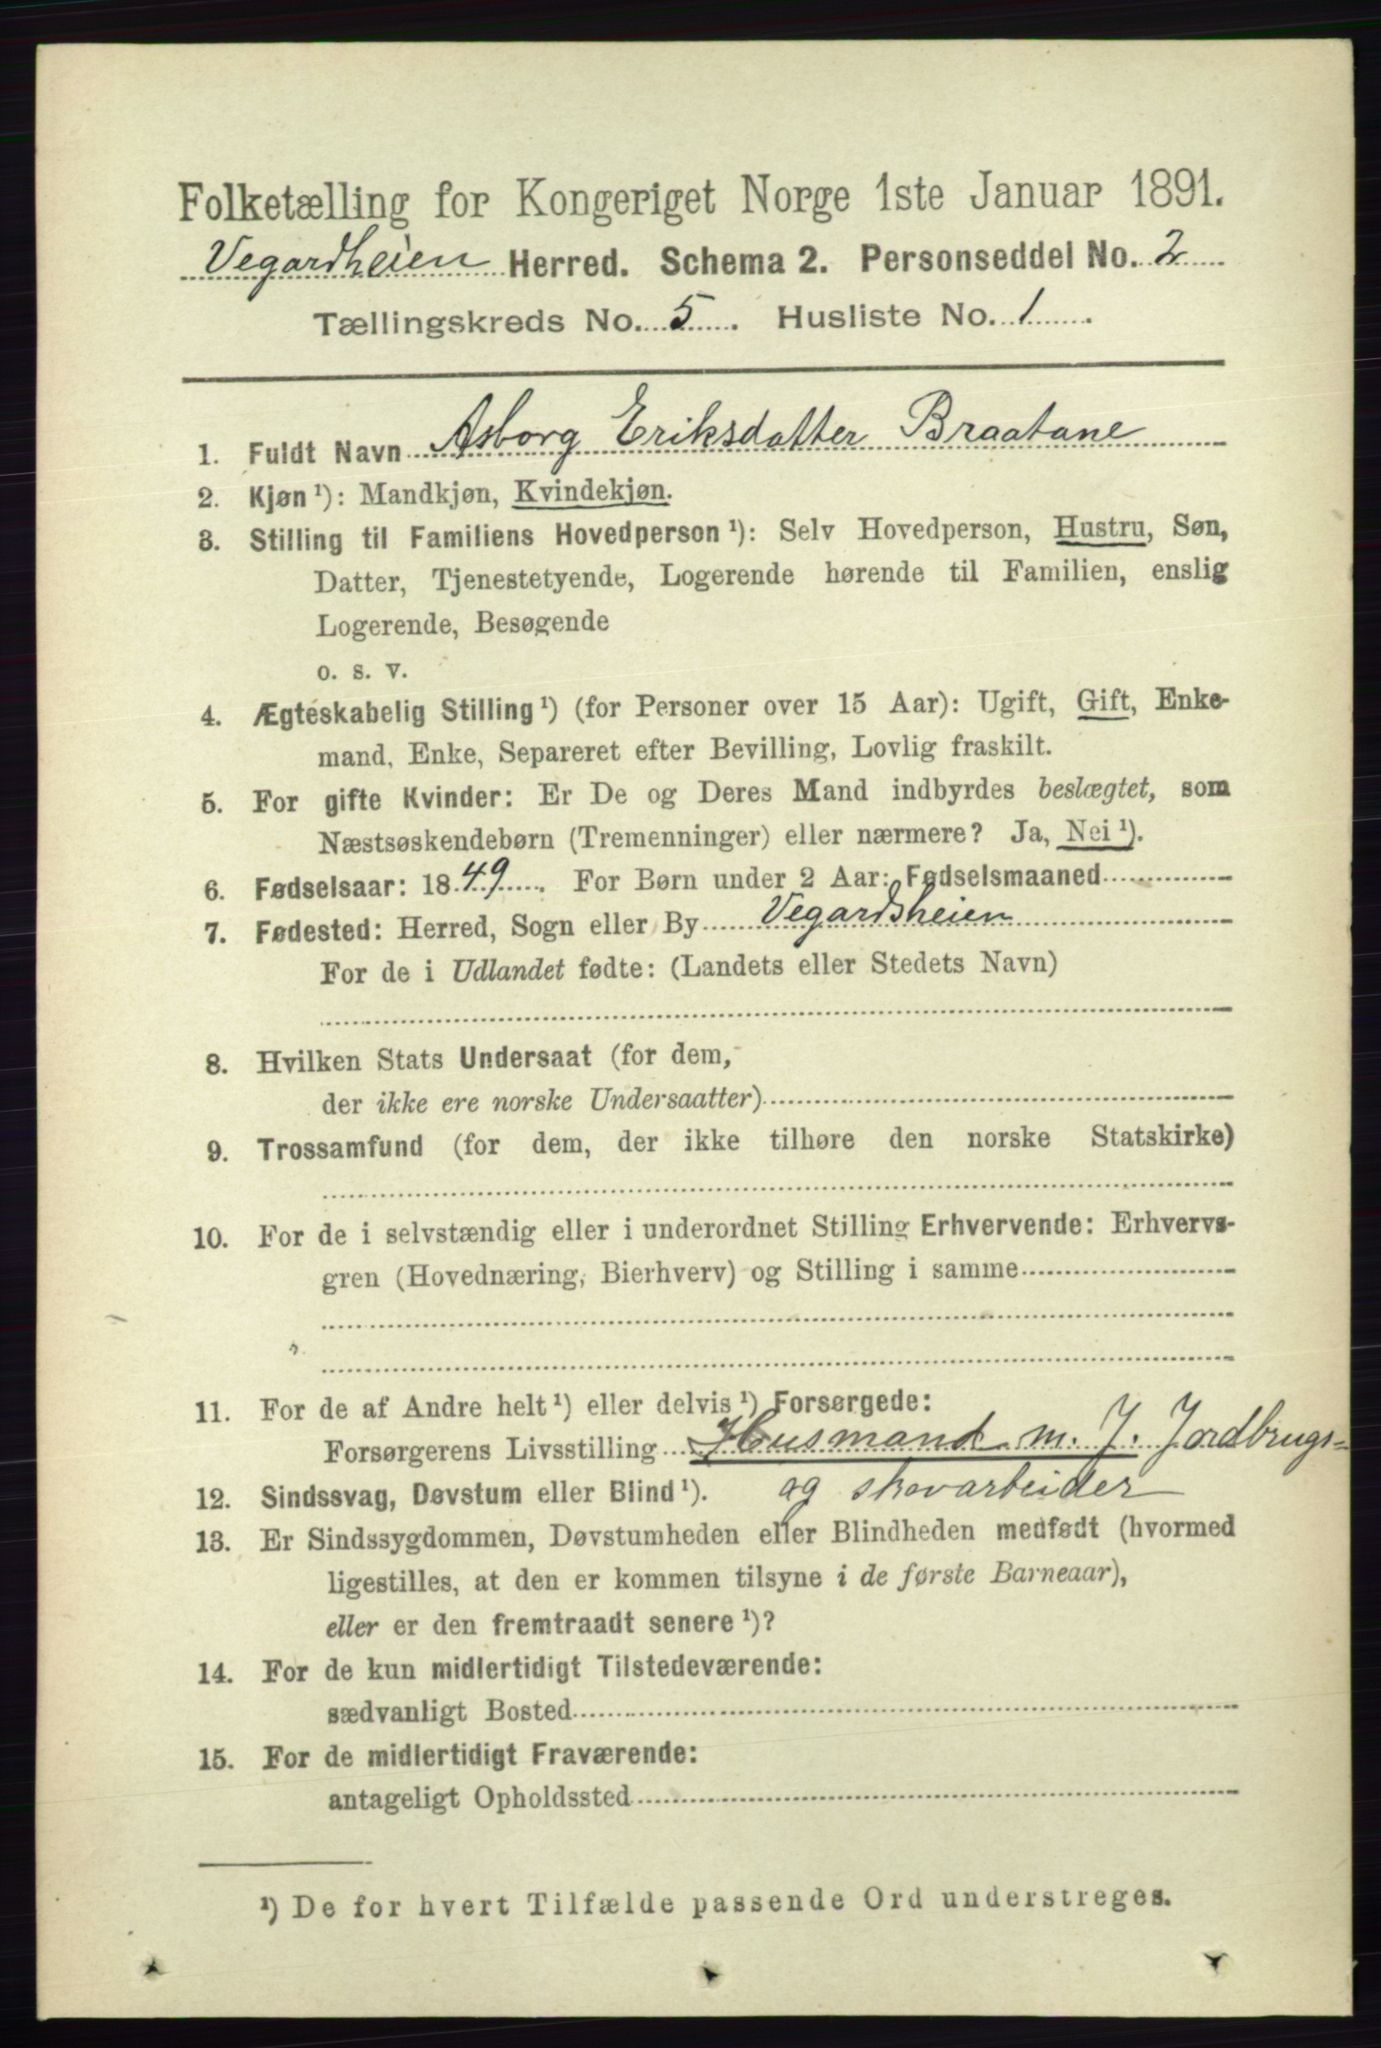 Folketælling for Kongeriget Norge 1ste Januar 1891.
Vegardheien Herred. Schema 2. Personseddel No. 2
Tællingskreds No. 5. Husliste No. 1.
1. Fuldt Navn Asborg Eriksdatter Braatane
2. Kjøn ¹): Mandkjøn, Kvindekjøn.
3. Stilling til Familiens Hovedperson ¹): Selv Hovedperson, Hustru, Søn,
Datter, Tjenestetyende, Logerende hørende til Familien, enslig
Logerende, Besøgende
o. s. v.
4. Ægteskabelig Stilling ¹) (for Personer over 15 Aar): Ugift, Gift, Enke-
mand, Enke, Separeret efter Bevilling, Lovlig fraskilt.
5. For gifte Kvinder: Er De og Deres Mand indbyrdes beslægtet, som
Næstsøskendebørn (Tremenninger) eller nærmere? Ja, Nei ¹).
6. Fødselsaar: 1849. For Børn under 2 Aar: Fødselsmaaned
7. Fødested: Herred, Sogn eller By Vegardsheien
For de i Udlandet fødte: (Landets eller Stedets Navn)
8. Hvilken Stats Undersaat (for dem,
der ikke ere norske Undersaatter)
9. Trossamfund (for dem, der ikke tilhøre den norske Statskirke)
10. For de i selvstændig eller i underordnet Stilling Erhvervende: Erhvervs-
gren (Hovednæring, Bierhverv) og Stilling i samme
11. For de af Andre helt ¹) eller delvis ¹) Forsørgede:
Forsørgerens Livsstilling Husmand m. J. Jordbrugs=
12. Sindssvag, Døvstum eller Blind ¹). og skovarbeider
13. Er Sindssygdommen, Døvstumheden eller Blindheden medfødt (hvormed
ligestilles, at den er kommen tilsyne i de første Barneaar),
eller er den fremtraadt senere ¹)?
14. For de kun midlertidigt Tilstedeværende:
sædvanligt Bosted
15. For de midlertidigt Fraværende:
antageligt Opholdssted
¹) De for hvert Tilfælde passende Ord understreges.